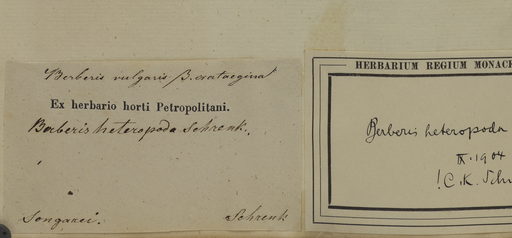 Berberis vulgaris β. crataegina
Ex herbario horti Petropolitani.
Berberis heteropoda Schrenk.
Songarei. Schrenk
HERBARIUM REGIUM MONACE
Berberis heteropoda
IX. 1904
! C. K. Schn